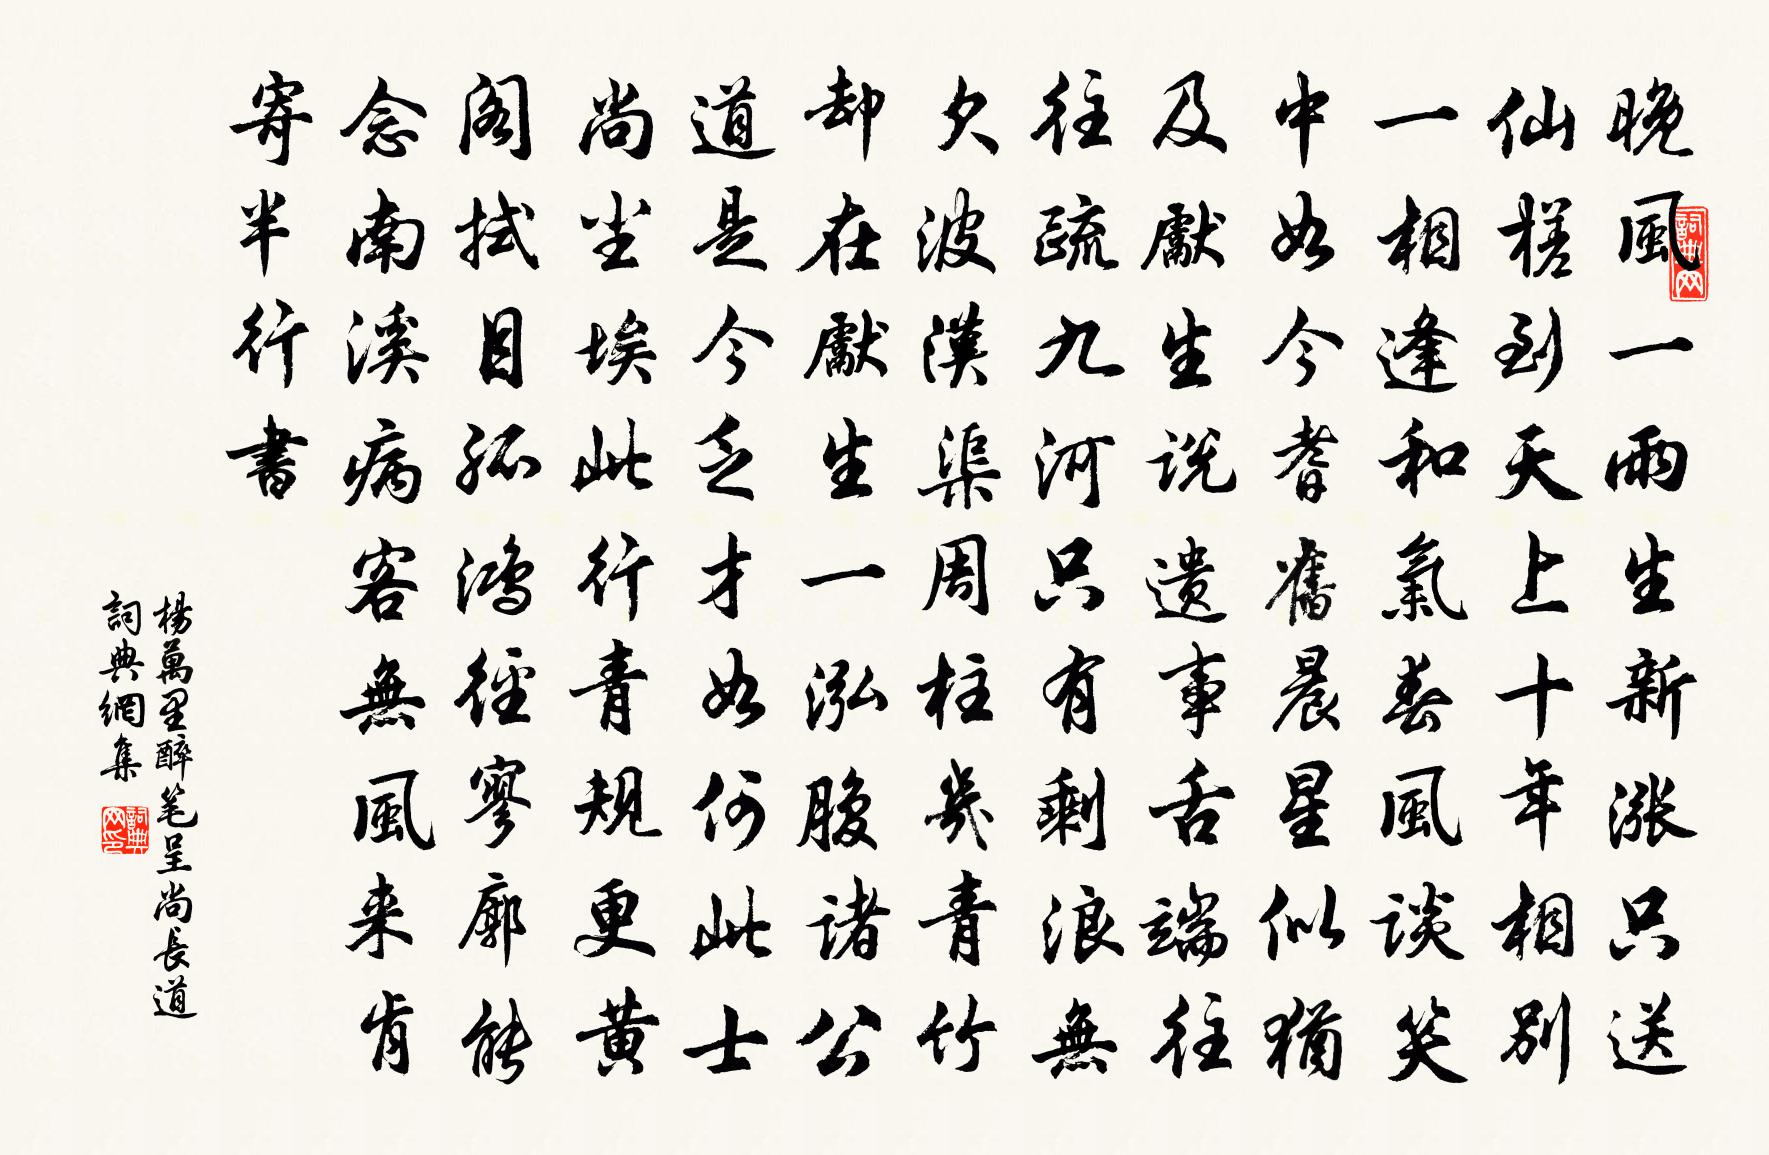 晚風一雨生新漲只送
仙槎到天上十年相別
一相逢和氣春風談笑
中如今耆舊晨星似猶
及獻生説遺事舌端往
往疏九河只有剩浪無
欠波漢渠周柱幾青竹
却在獻生一泓腹諸公
道是今乏才如何此士
尚坐埃此行青規更黄
閣拭目孤鴻徑寥廓能
念南溪病客無風来肯
寄半行書
楊萬里醉笔呈尚長道
詞典網集
詞典网
詞典网印